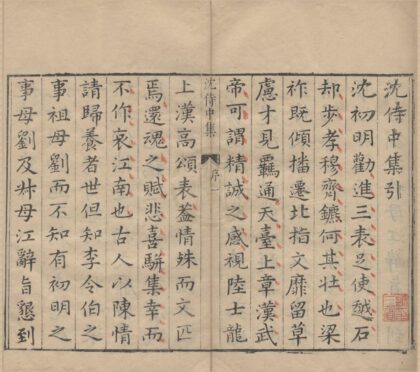 沈侍中集引
沈初明勸進三表足使越石
却步孝穆齊鑣何其壯也梁
祚既傾播遷北指文靡留草
慮才見羈通天臺上章漢武
帝可謂精誠之感視陸士龍
沈侍中集 序 一
上漢高頌表葢情殊而文匹
焉還魂之賦悲喜駢集幸而
不作哀江南也古人以陳情
請歸養者世但知李令伯之
事祖母劉而不知有初明之
事母劉及叔母江辭旨懇到